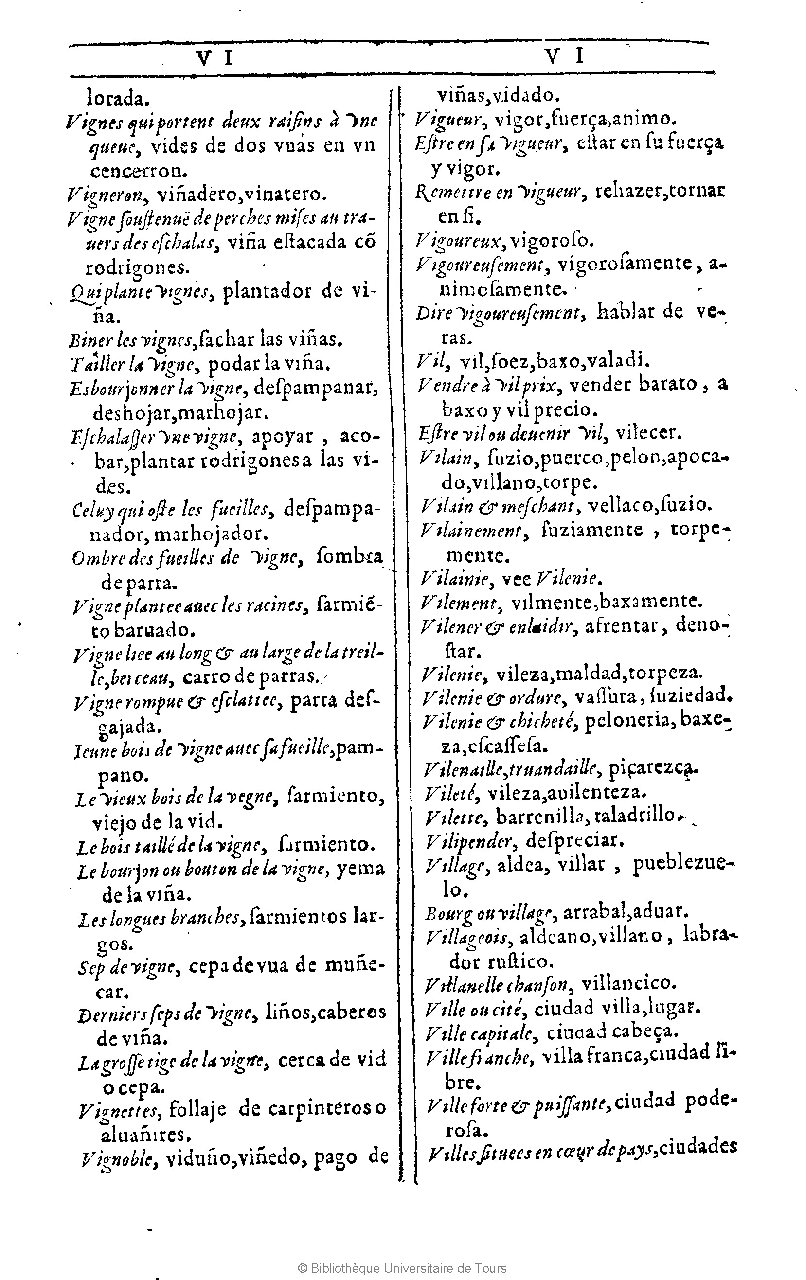 V I
lorada.
Vignes qui portent deux raiſins à vne
queue, vides de dos vuas en vn
cencerron.
Vigneron, viñadero,vinatero.
Vigne ſouſtenuë de perches miſes au tra-
uers des eſchalas, viña eſtacada cõ
rodrigones.
Qui plante vignes, plantador de vi-
ña.
Biner les vignes,ſachar las viñas.
Tailler la vigne, podar la viña.
Esbourjonner la vigne, deſpampanar,
deshojar,marhojar.
Eſchalaſſer vne vigne, apoyar , aco-
bar,plantar rodrigones a las vi-
des.
Celuy qui oſte les fueilles, deſpampa-
nador, marhojador.
Ombre des fueilles de vigne, ſombra
de parra.
Vigne plantee auec les racines, ſarmiẽ-
to baruado.
Vigne liee au long & au large de la treil-
le,berceau, carro de parras.
Vigne rompue & eſclattee, parra deſ-
gajada.
Ieune bois de vigne auec ſa fueille,pam-
pano.
Le vieux bois de la vegne, ſarmiento,
viejo de la vid.
Le bois taillé de la vigne, ſarmiento.
Le bourjon ou bouton de la vigne, yema
de la viña.
Les longues branches,ſarmientos lar-
gos.
Sep de vigne, cepa de vua de muñe-
car.
Derniers ſeps de vigne, liños,caberos
de viña.
La groſſe tige de la vigne, cerca de vid
o cepa.
Vignettes, follaje de carpinteros o
aluañires.
Vignoble, viduño,viñedo, pago de
V I
viñas,vidado.
Vigueur, vigor,fuerça,animo.
Eſtre en ſa vigueur, eſtar en ſu fuerça
y vigor.
Remettre en vigueur, rehazer,tornar
en ſi.
Vigoureux, vigoroſo.
Vigoureuſement, vigoroſamente, a-
nimoſamente.
Dire vigoureuſement, hablar de ve-
ras.
Vil, vil,ſoez,baxo,valadi.
Vendre à vil prix, vender barato, a
baxo y vil precio.
Eſtre vil ou deuenir vil, vilecer.
Vilain, ſuzio,puerco,pelon,apoca-
do,villano,torpe.
Vilain & meſchant, vellaco,ſuzio.
Vilainement, ſuziamente , torpe-
mente.
Vilainie, vee Vilenie.
Vilement, vilmente,baxamente.
Vilener & enlaidir, afrentar, deno-
ſtar.
Vilenie, vileza,maldad,torpeza.
Vilenie & ordure, vaſſura, ſuziedad.
Vilenie & chicheté, peloneria, baxe-
za,eſcaſſeſa.
Vilenaille,truandaille, piçarezça.
Vileté, vileza,auilenteza.
Vilette, barrenilla, taladrillo.
Vilipender, deſpreciar.
Village, aldea, villar , pueblezue-
lo.
Bourg ou village, arrabal,aduar.
Villageois, aldeano,villano , labra-
dor ruſtico.
Villanelle chanſon, villancico.
Ville ou cité, ciudad villa,lugar.
Ville capitale, ciudad cabeça.
Ville franche, villa franca,ciudad li-
bre.
Ville forte & puiſſante,ciudad pode-
roſa.
Villes ſituees en cœur de pays,ciudades
© Bibliothèque Universitaire de Tours